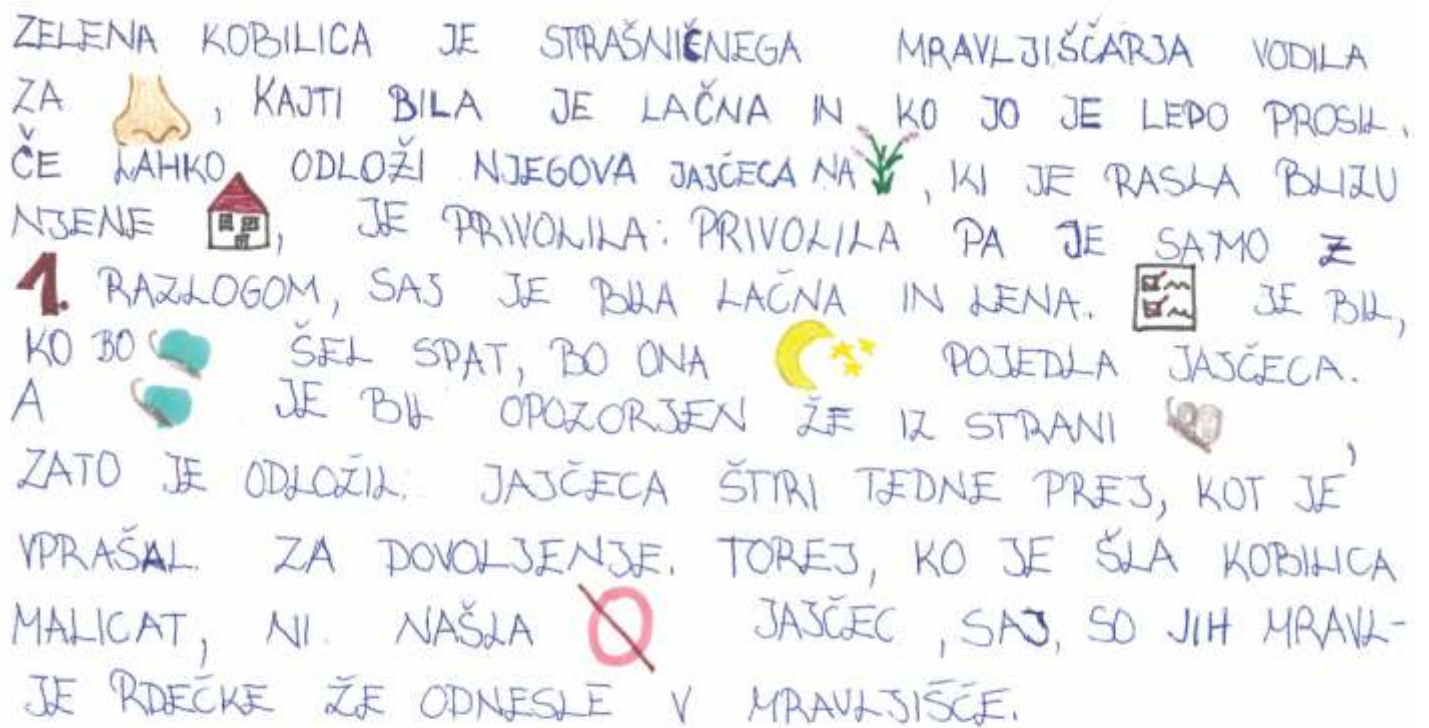 ZELENA KOBILICA JE STRAŠNIČNEGA MRAVLJIŠČARJA VODILA
ZA , KAJTI BILA JE LAČNA IN KO JO JE LEPO PROSIL.
ČE LAHKO ODLOŽI NJEGOVA JAJČECA NA , KI JE RASLA BLIZU
NJENE , JE PRIVOLILA. PRIVOLILA PA JE SAMO Z
1. RAZLOGOM, SAJ JE BILA LAČNA IN LENA. JE BIL,
KO BO ŠEL SPAT, BO ONA POJEDLA JAJČECA.
A JE BIL OPOZORJEN ŽE IZ STRANI ,
ZATO JE ODLOŽIL JAJČECA ŠTIRI TEDNE PREJ, KOT JE
VPRAŠAL ZA DOVOLJENJE. TOREJ, KO JE ŠLA KOBILICA
MALICAT, NI NAŠLA JAJČEC, SAJ SO JIH MRAVL-
JE RDEČKE ŽE ODNESLE V MRAVLJIŠČE.